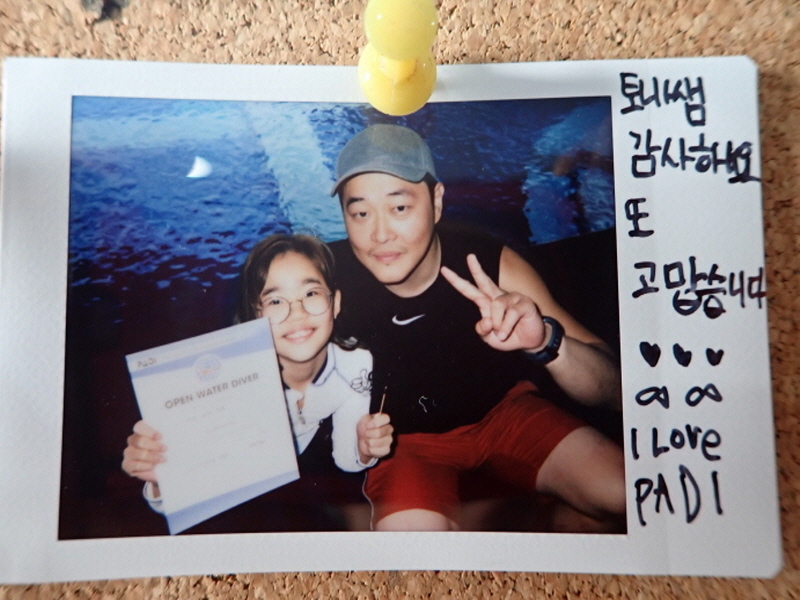 토니쌤
감사해요
또
고맙습니다
♥♥♥
∞ ∞
I Love
PADI
PADI
OPEN WATER DIVER